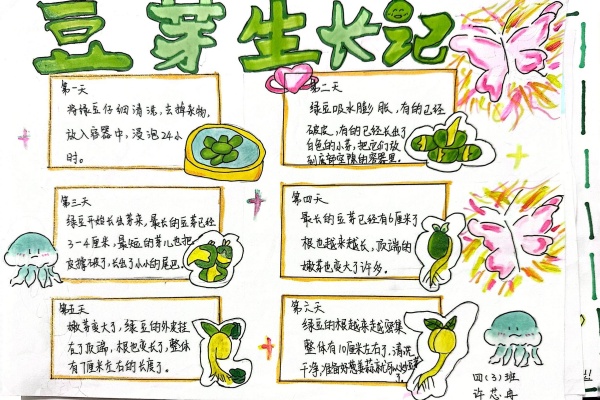 豆芽生长记
第一天
将绿豆仔细清洗，去掉杂物，
放入容器中，浸泡24小
时。
第二天
绿豆吸水膨胀，有的已经
破皮，有的已经长出了
白色的小芽，把它们放
到底部空隙的容器里。
第三天
绿豆开始长出芽来，最长的豆芽已经
3-4厘米，最短的芽儿也把
皮撑破了，长出了小小的尾巴。
第四天
最长的豆芽已经有6厘米了
根也越来越长，顶端的
嫩芽也变大了许多。
第五天
嫩芽变大了，绿豆的外皮挂
在了顶端，根也变长了，整体
有7厘米左右的长度了。
第六天
绿豆的根越来越密集
整体有10厘米左右了，清洗
干净，准备好葱姜蒜就可以炒豆芽
了。
四(3)班
许芯冉